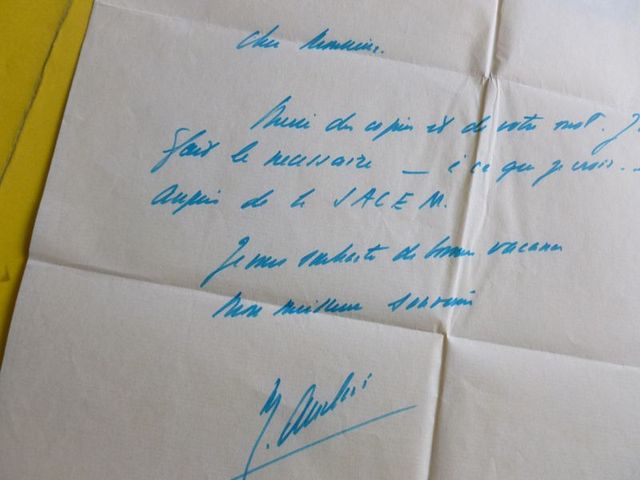 Cher Monsieur.
Merci des copies et de votre mot. J
fait le nécessaire — à ce que je crois. —
auprès de la SACEM.
Je vous souhaite de bonnes vacances
Mon meilleur souvenir